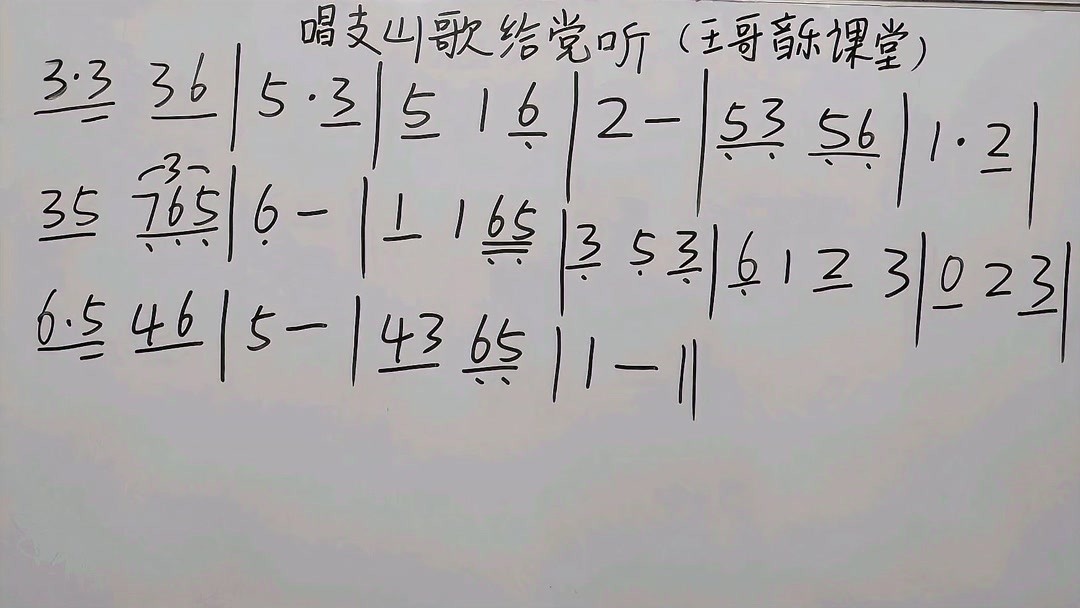 唱支山歌给党听（王哥音乐课堂）
3·3 36 | 5·3 | 5 1 6 | 2 — | 53 56 | 1·2 |
35 765 | 6 — | 1 1 65 | 3 5 3 | 6 1 2 3 | 0 2 3 |
3
6·5 46 | 5 — | 43 65 | 1 — ||